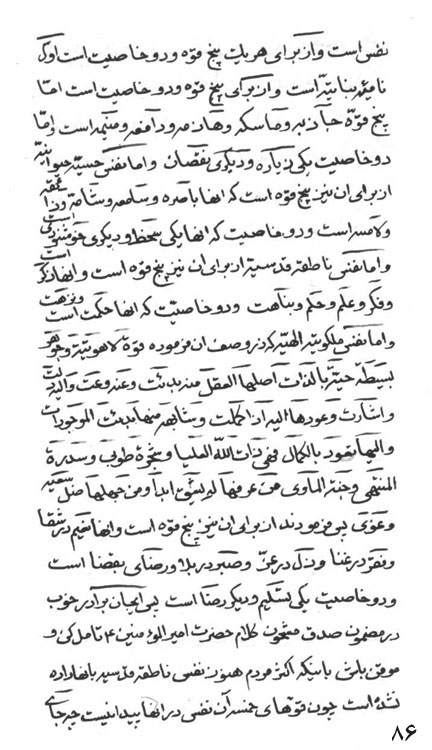 نفس است و از برای هر یک پنج قوه و دو خاصیت است اول
نامیه نباتیّه است و از برای پنج قوّه و دو خاصیت است امّا
پنج قوّه جاذبه و ماسکه و هاضمه و دافعه و منمیه است و امّا
دو خاصیت یکی زیاده و دیگری نقصان و اما نفس حسیّه حیوانیّه
از برای ان نیز پنج قوه است که انها باصره و سامعه و شامّه و ذائقه
و لامسه است و دو خاصیت که انها یکی سخط و دیگری خوشنودی است
و اما نفس ناطقه قدسیّه از برای ان نیز پنج قوه است و انها ذکر است
و فکر و علم و حلم و بناهت و دو خاصیّت که انها حکمت است و نزهت
و اما نفس ملکوتیّه الهیّه که در وصف ان فرموده قوّة لاهوتیّة و جوهره
بسیطة حیّة بالذات اصلها العقل منه بدئت و عنه وعت و الیه دلّت
و اشارت و عودها الیه اذا کملت و شابهته منها بدئت الموجودات
و الیها یعود بالکمال فهی ذات الله العلیا و شجرة طوبی و سدرة
المنتهی و جنة الماوی من عرفها لم یشق ابدا و من جهلها ضل سعیه
و غوی پس فرمودند از برای ان نیز پنج قوه است و انها نعیم در شقا
و فقر در غنا و ذل در عزّ و صبر در بلا و رضای بقضا است
و دو خاصیت یکی تسلیم و دیگر رضا است پس ایجان برادر خوب
در مضمون صدق مشحون کلام حضرت امیر المؤمنین ۴ تامل کن و
موقن باش باینکه اکثر مردم هنوز نفس ناطقه قدسیه بانها داده
نشده است چون قوتهای خمسه آن نفس در انها پیدا نیست چه جای
۸۶